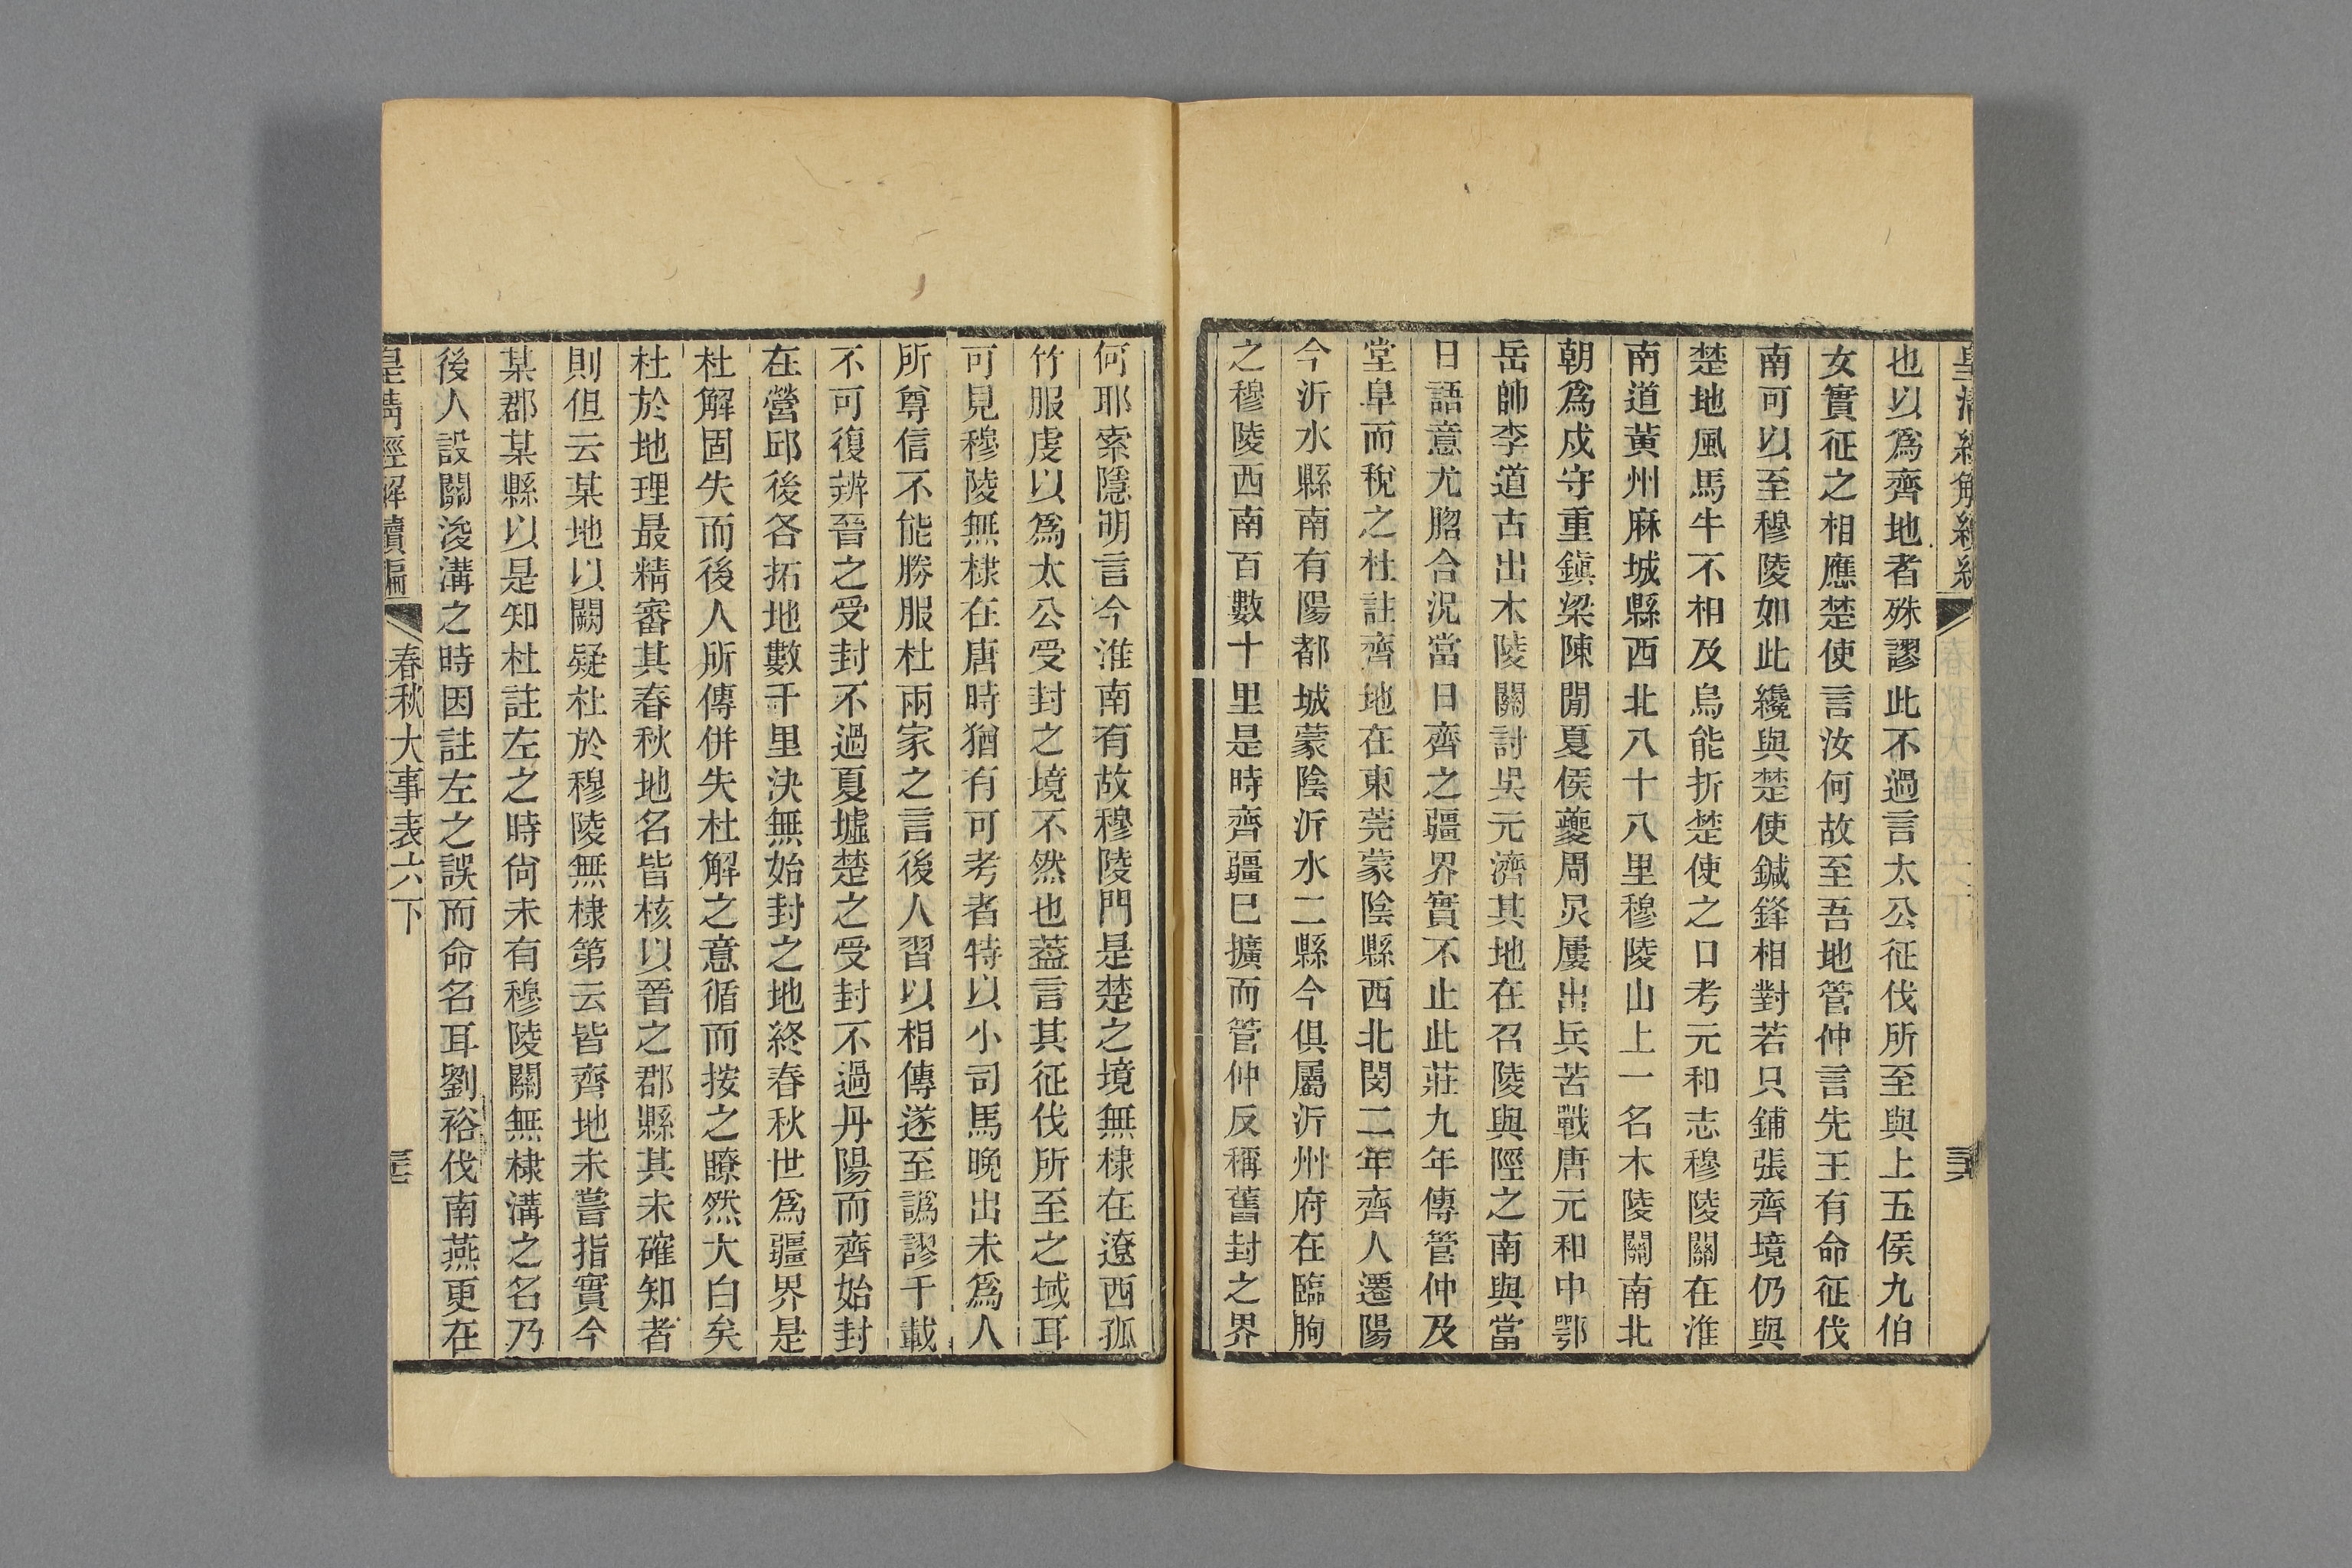 也以爲齊地者殊謬此不過言太公征伐所至與上五侯九伯
女實征之相應楚使言汝何故至吾地管仲言先王有命征伐
南可以至穆陵如此纔與楚使鍼鋒相對若只鋪張齊境仍與
楚地風馬牛不相及烏能折楚使之口考元和志穆陵關在淮
南道黃州麻城縣西北八十八里穆陵山上一名木陵關南北
朝爲戍守重鎭梁陳閒夏侯夔周炅屢出兵苦戰唐元和中鄂
岳帥李道古出木陵關討吳元濟其地在召陵與陘之南與當
日語意尤脗合況當日齊之疆界實不止此莊九年傳管仲及
堂阜而稅之杜註齊地在東莞蒙陰縣西北閔二年齊人遷陽
今沂水縣南有陽都城蒙陰沂水二縣今俱屬沂州府在臨朐
之穆陵西南百數十里是時齊疆巳擴而管仲反稱舊封之界
何耶索隱明言今淮南有故穆陵門是楚之境無棣在遼西孤
竹服虔以爲太公受封之境不然也葢言其征伐所至之域耳
可見穆陵無棣在唐時猶有可考者特以小司馬晚出未爲人
所尊信不能勝服杜兩家之言後人習以相傳遂至譌謬千載
不可復辨晉之受封不過夏墟楚之受封不過丹陽而齊始封
在營邱後各拓地數千里決無始封之地終春秋世爲疆界是
杜解固失而後人所傳併失杜解之意循而按之瞭然大白矣
杜於地理最精審其春秋地名皆核以晉之郡縣其未確知者
則但云某地以闕疑杜於穆陵無棣第云皆齊地未嘗指實今
某郡某縣以是知杜註左之時尙未有穆陵關無棣溝之名乃
後人設關浚溝之時因註左之誤而命名耳劉裕伐南燕更在
皇淸經解續編 春秋大事表六下